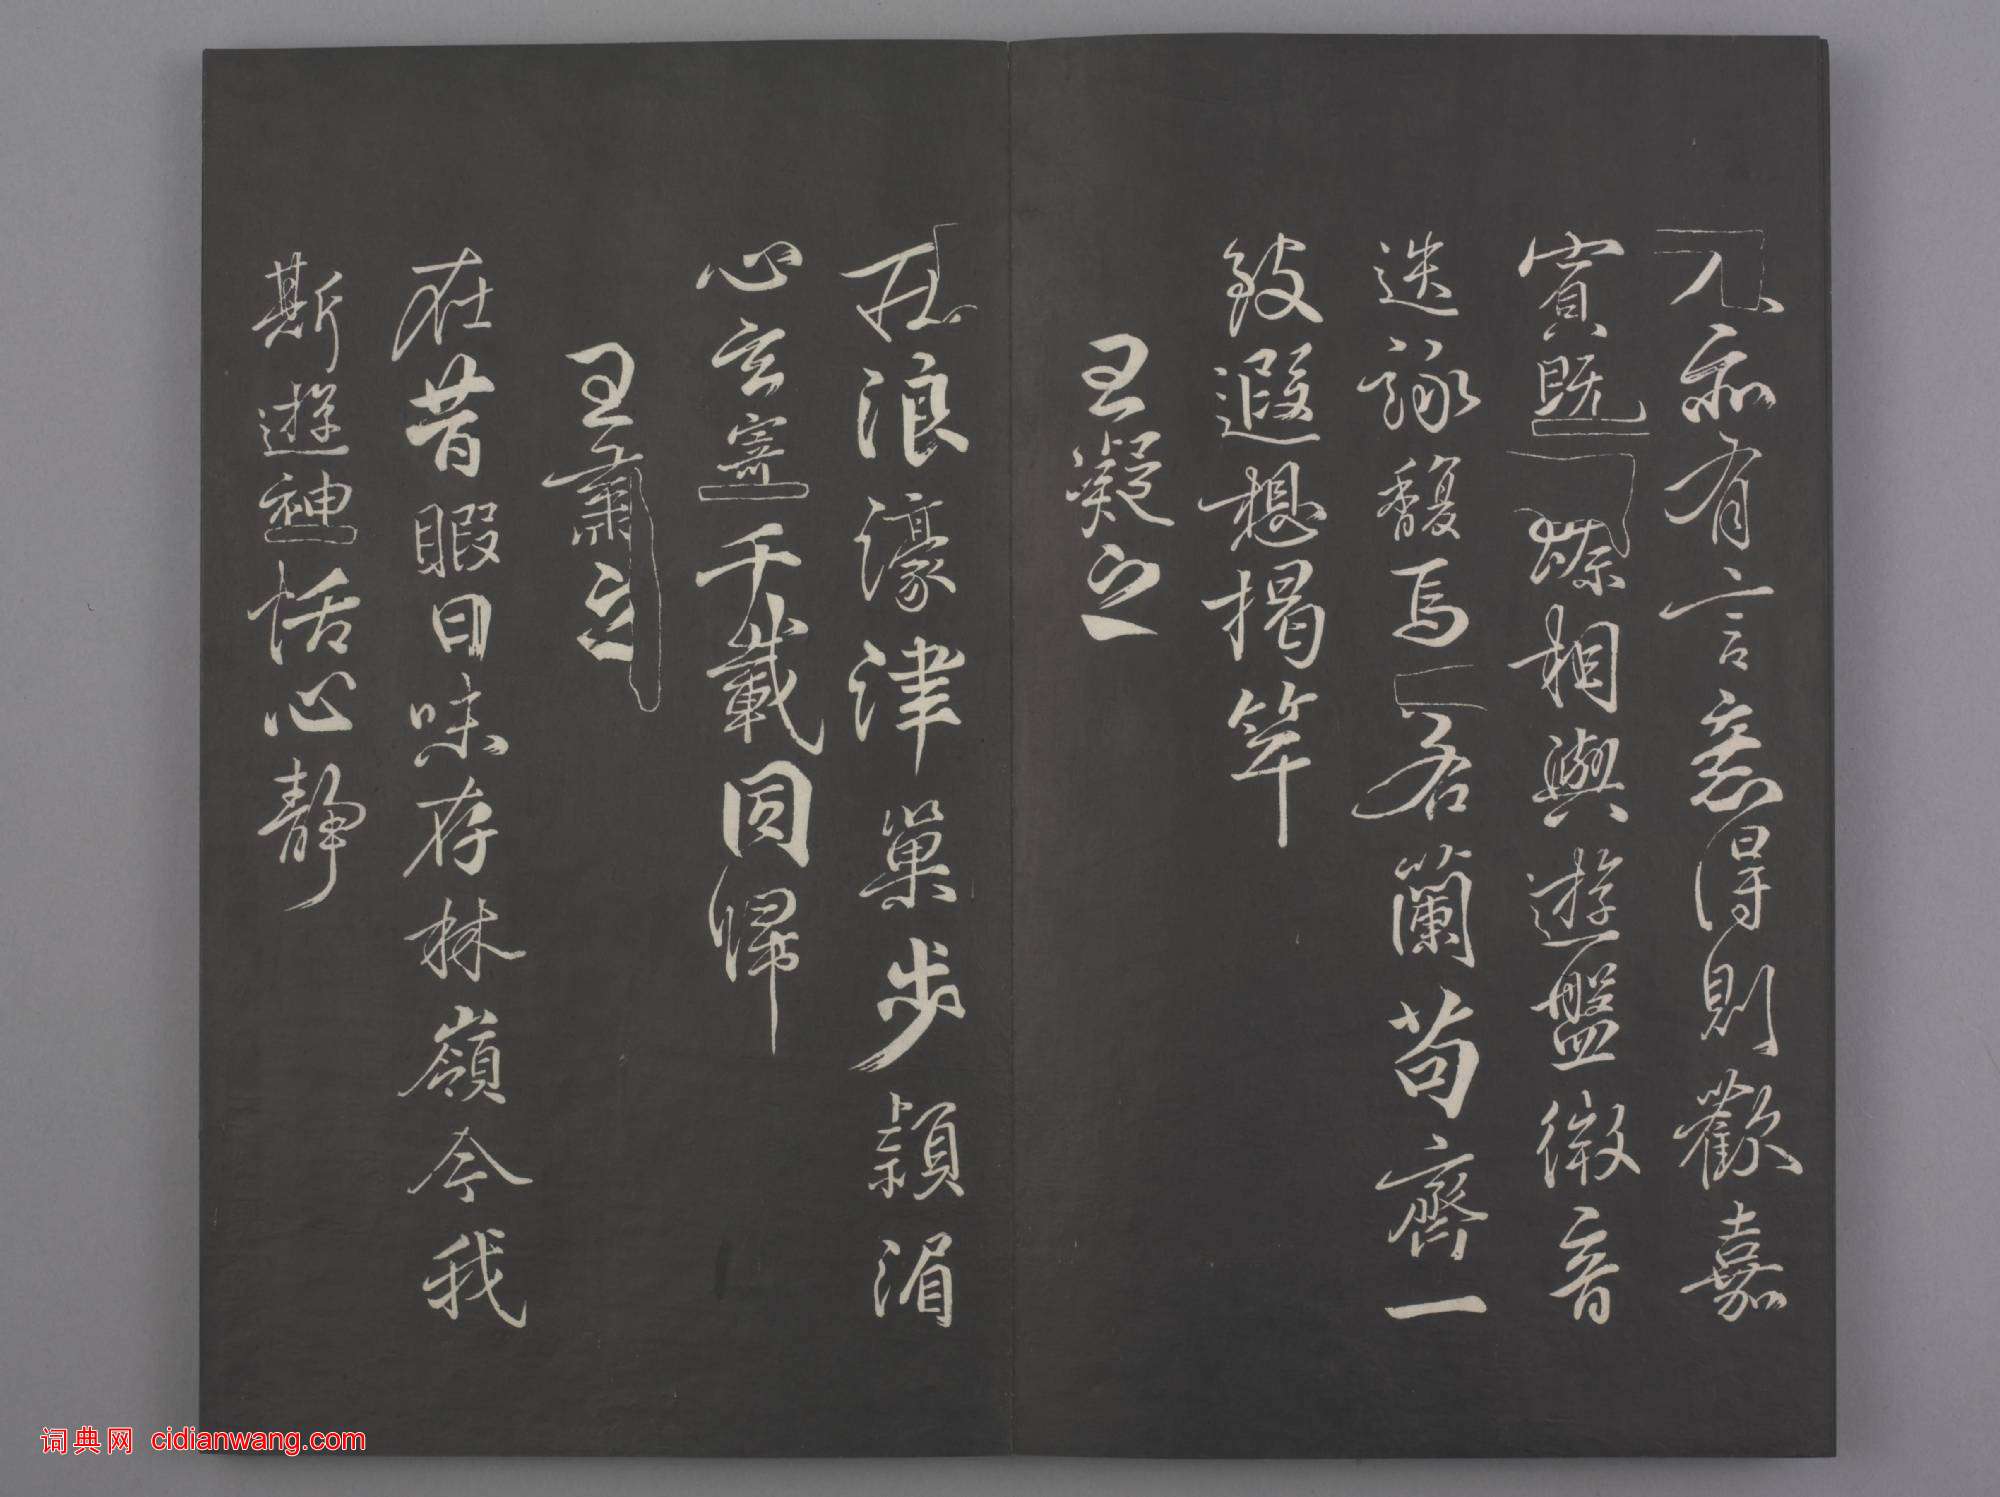 人亦有言意得則歡嘉
賓既臻相與遊盤微音
迭詠馥焉若蘭苟齊一
致遐想揭竿
王凝之
莊浪濠津巢步潁湄
心玄寄千載同歸
王肅之
在昔暇日味存林嶺今我
斯遊神恬心靜
词典网 cidianwang.com